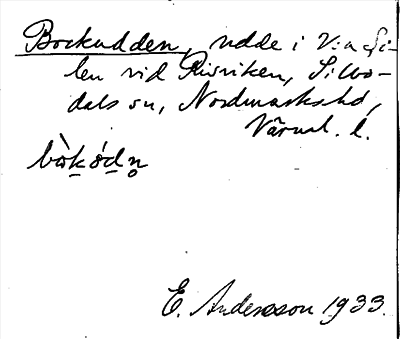 Bockudden, udde i V:a Si-
len vid Risviken, Sillbo-
dals sn, Nordmarks hd,
Värml. l.
bòkódn
E. Andersson 1933.